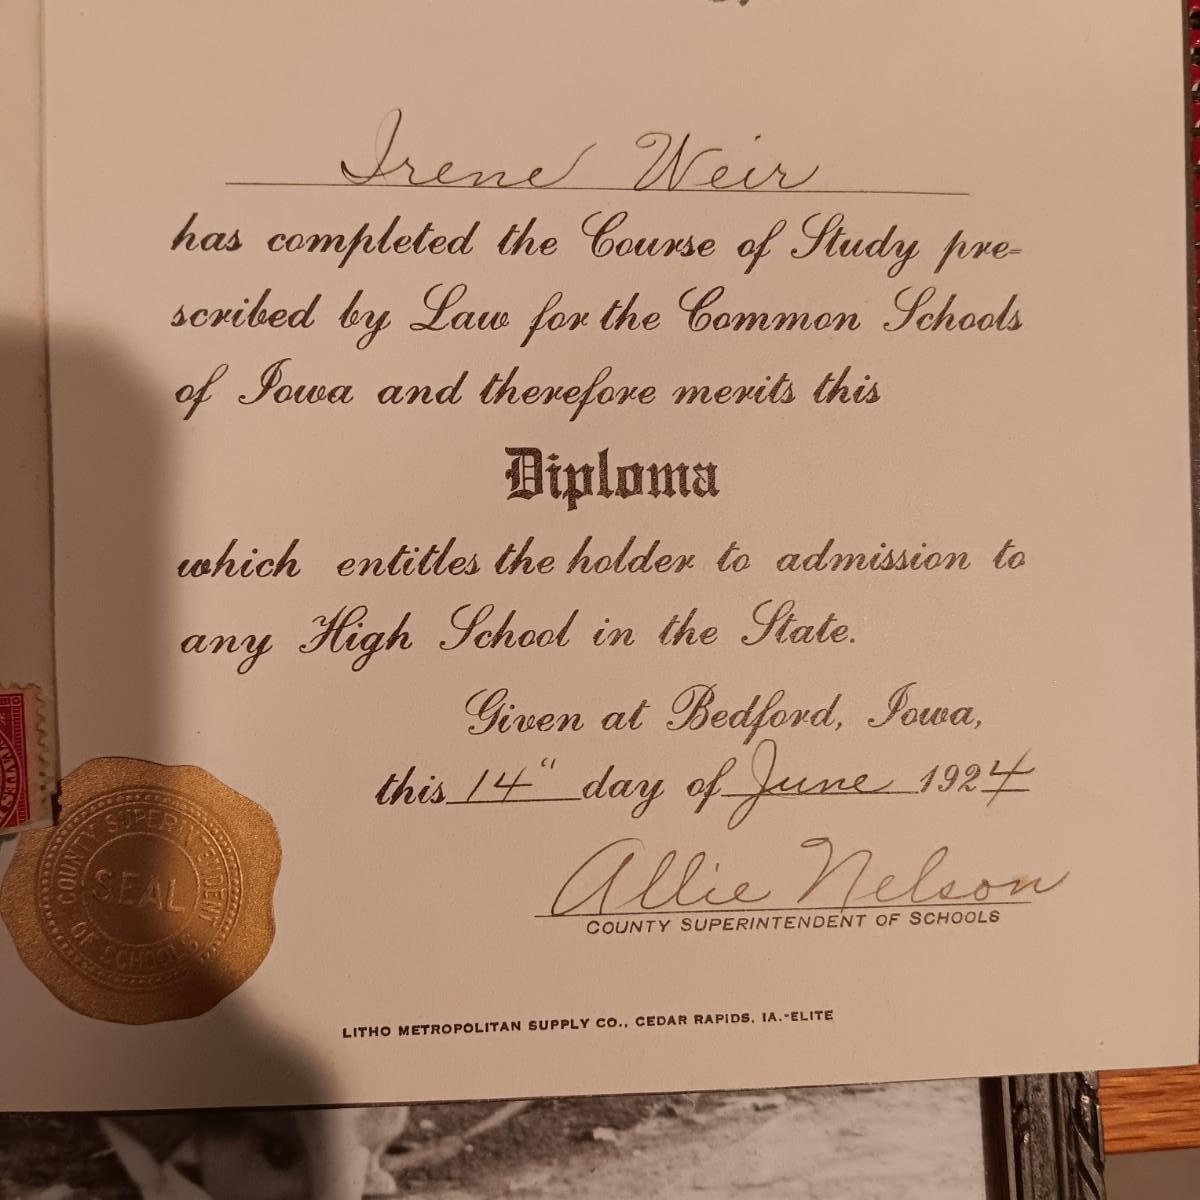 Irene Weir
has completed the Course of Study pre=
scribed by Law for the Common Schools
of Iowa and therefore merits this
Diploma
which entitles the holder to admission to
any High School in the State.
Given at Bedford, Iowa,
this 14" day of June 1924
Allie Nelson
COUNTY SUPERINTENDENT OF SCHOOLS
COUNTY SUPERINTENDENT
SEAL
OF SCHOOLS
LITHO METROPOLITAN SUPPLY CO., CEDAR RAPIDS, IA.-ELITE